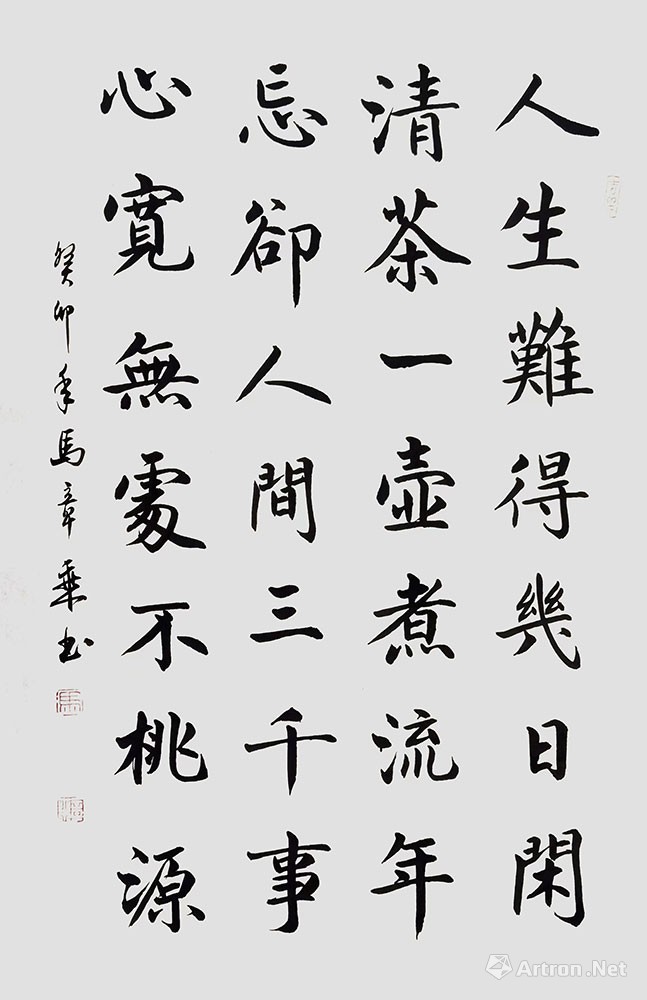 人生難得幾日閑
清茶一壺煮流年
忘卻人間三千事
心寬無處不桃源
癸卯年馬章乗书
Artron.Net